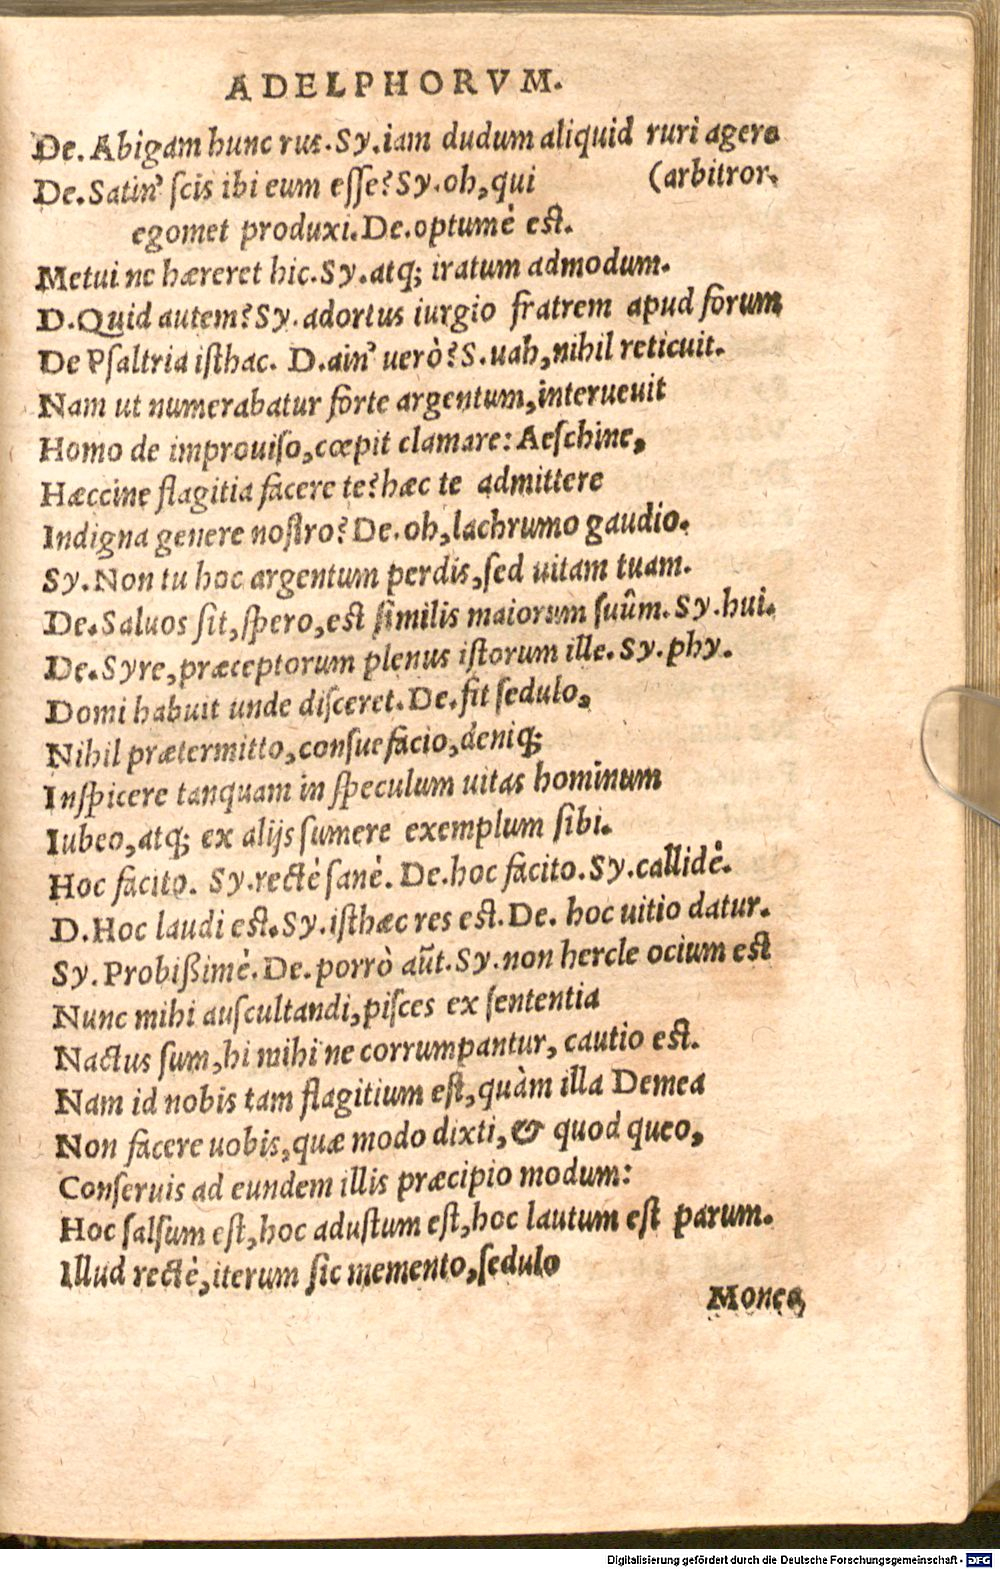 ADELPHORVM.
De. Abigam hunc rus. Sy. iam dudum aliquid ruri agere
De. Satin' scis ibi eum esse? Sy. oh, qui (arbitror.
egomet produxi. De. optumè est.
Metui ne hæreret hic. Sy. atq; iratum admodum.
D. Quid autem? Sy. adortus iurgio fratrem apud forum
De Psaltria isthac. D. ain' uerò? S. uah, nihil reticuit.
Nam ut numerabatur forte argentum, interuenit
Homo de improuiso, cœpit clamare: Aeschine,
Hæccine flagitia facere te? hæc te admittere
Indigna genere nostro? De. oh, lachrumo gaudio.
Sy. Non tu hoc argentum perdis, sed uitam tuam.
De. Saluos sit, spero, est similis maiorum suûm. Sy. hui.
De. Syre, præceptorum plenus istorum ille. Sy. phy.
Domi habuit unde disceret. De. fit sedulo,
Nihil prætermitto, consuefacio, deniq;
Inspicere tanquam in speculum uitas hominum
Iubeo, atq; ex alijs sumere exemplum sibi.
Hoc facito. Sy. rectè sanè. De. hoc facito. Sy. callidè.
D. Hoc laudi est. Sy. isthæc res est. De. hoc uitio datur.
Sy. Probißimè. De. porrò aũt. Sy. non hercle ocium est
Nunc mihi auscultandi, pisces ex sententia
Nactus sum, hi mihi ne corrumpantur, cautio est.
Nam id nobis tam flagitium est, quàm illa Demea
Non facere uobis, quæ modo dixti, & quod queo,
Conseruis ad eundem illis præcipio modum:
Hoc salsum est, hoc adustum est, hoc lautum est parum.
Illud rectè, iterum sic memento, sedulo
Monea
Digitalisierung gefördert durch die Deutsche Forschungsgemeinschaft - DFG